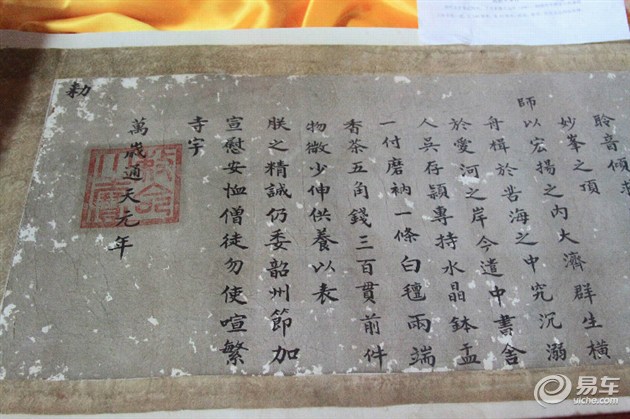 聆音傾求
妙峯之頂
師以宏揚之内大濟群生橫
舟楫於苦海之中究沉溺
於愛河之岸今遣中書舍
人吳存穎專持水晶鉢盂
一付磨衲一條白氎兩端
香茶五角錢三百貫前件
物微少伸供養以表
朕之精誠仍委韶州節加
宣慰安恤僧徒勿使喧繁
寺宇
萬歲通天元年
勅
易车
yiche.com